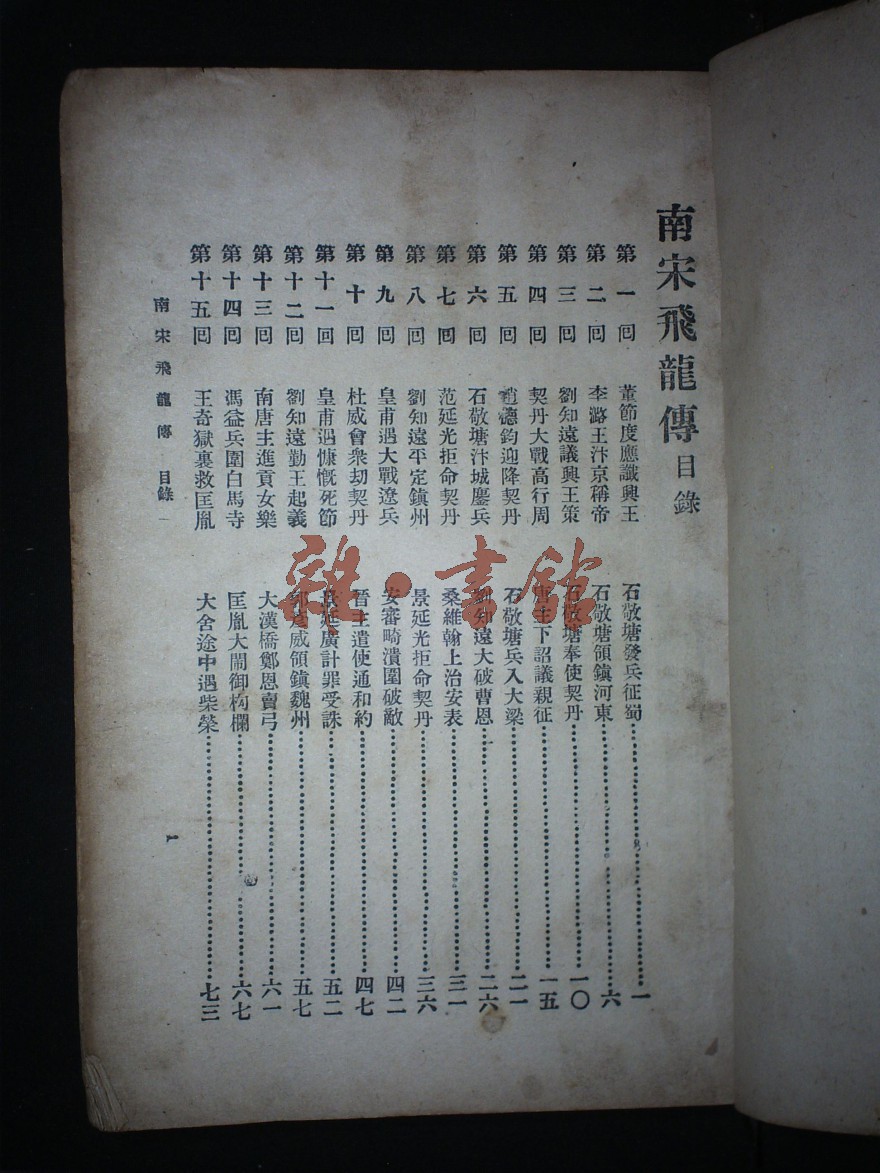 南宋飛龍傳 目錄
第一回 董節度應讖興王 石敬塘發兵征蜀 一
第二回 李潞王汴京稱帝 石敬塘領鎮河東 六
第三回 劉知遠議興王策 石敬塘奉使契丹 一〇
第四回 契丹大戰高行周 唐主下詔議親征 一五
第五回 趙德鈞迎降契丹 石敬塘兵入大梁 二一
第六回 石敬塘汴城鏖兵 劉知遠大破曹恩 二六
第七回 范延光拒命契丹 桑維翰上治安表 三一
第八回 劉知遠平定鎮州 景延光拒命契丹 三六
第九回 皇甫遇大戰遼兵 安審畸潰圍破敵 四二
第十回 杜威會衆劫契丹 晉主遣使通和約 四七
第十一回 皇甫遇慷慨死節 景延廣計罪受誅 五二
第十二回 劉知遠勤王起義 郭彥威領鎮魏州 五七
第十三回 南唐主進貢女樂 大漢橋鄭恩賣弓 六一
第十四回 馮益兵圍白馬寺 匡胤大鬧御构欄 六七
第十五回 王奇獄裏救匡胤 大舍途中遇柴榮 七三
南宋飛龍傳 目錄 一
雜·書館